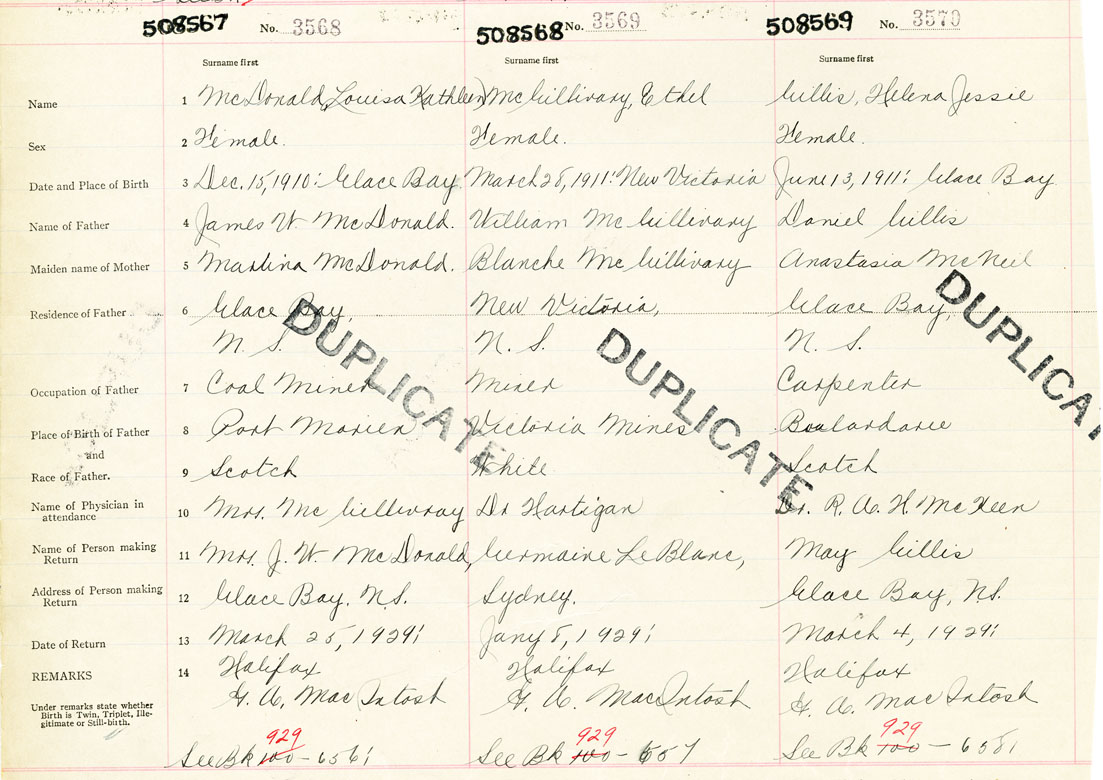 508567 No. 3568 508568 No. 3569 508569 No. 3570
Surname first Surname first Surname first
Name 1 McDonald, Louisa Kathleen) McGillivary, Ethel Gillis, Helena Jessie
Sex 2 Female. Female. Female.
Date and Place of Birth 3 Dec. 15, 1910: Glace Bay. March 28, 1911: New Victoria June 13, 1911: Glace Bay
Name of Father 4 James W. McDonald. William McGillivary Daniel Gillis
Maiden name of Mother 5 Martina McDonald. Blanche McGillivary Anastasia McNeil
Residence of Father 6 Glace Bay, New Victoria, Glace Bay,
N. S. N. S. N. S.
Occupation of Father 7 Coal Miner Miner Carpenter
Place of Birth of Father 8 Port Morien Victoria Mines Boulardarie
and
Race of Father. 9 Scotch White Scotch
Name of Physician in
attendance 10 Mrs. McGillivray Dr Hartigan Dr. R. A. H. McKeen
Name of Person making
Return 11 Mrs. J. W. McDonald, Germaine LeBlanc, May Gillis
Address of Person making
Return 12 Glace Bay, N.S. Sydney. Glace Bay, N.S.
Date of Return 13 March 25, 1929: Jany 8, 1929: March 4, 1929:
REMARKS 14 Halifax Halifax Halifax
G. A. MacIntosh G. A. MacIntosh G. A. MacIntosh
Under remarks state whether
Birth is Twin, Triplet, Ille-
gitimate or Still-birth.
929 929 929
See Bk 100 - 656 See Bk 100 - 657 See Bk 100 - 658
DUPLICATE DUPLICATE DUPLICATE